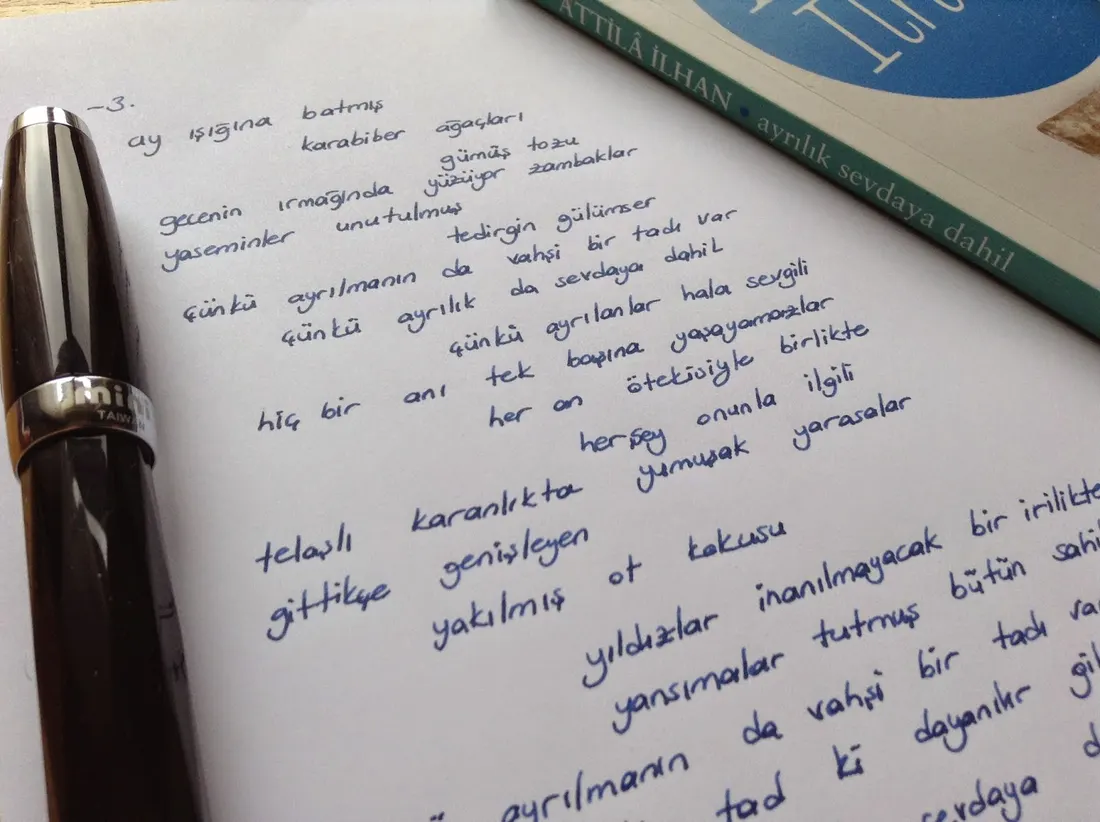 -3.
ay ışığına batmış
karabiber ağaçları
gümüş tozu
gecenin ırmağında yüzüyor zambaklar
yaseminler unutulmuş
tedirgin gülümser
çünkü ayrılmanın da vahşi bir tadı var
çünkü ayrılık da sevdaya dahil
çünkü ayrılanlar hala sevgili
hiç bir anı tek başına yaşayamazlar
her an ötekisiyle birlikte
herşey onunla ilgili
telaşlı karanlıkta yumuşak yarasalar
gittikçe genişleyen
yakılmış ot kokusu
yıldızlar inanılmayacak bir irilikte
yansımalar tutmuş bütün
ayrılmanın da vahşi bir tadı
tad ki dayanılır
sevdaya
ATTİLÂ İLHAN • ayrılık sevdaya dahil
TAIWAN